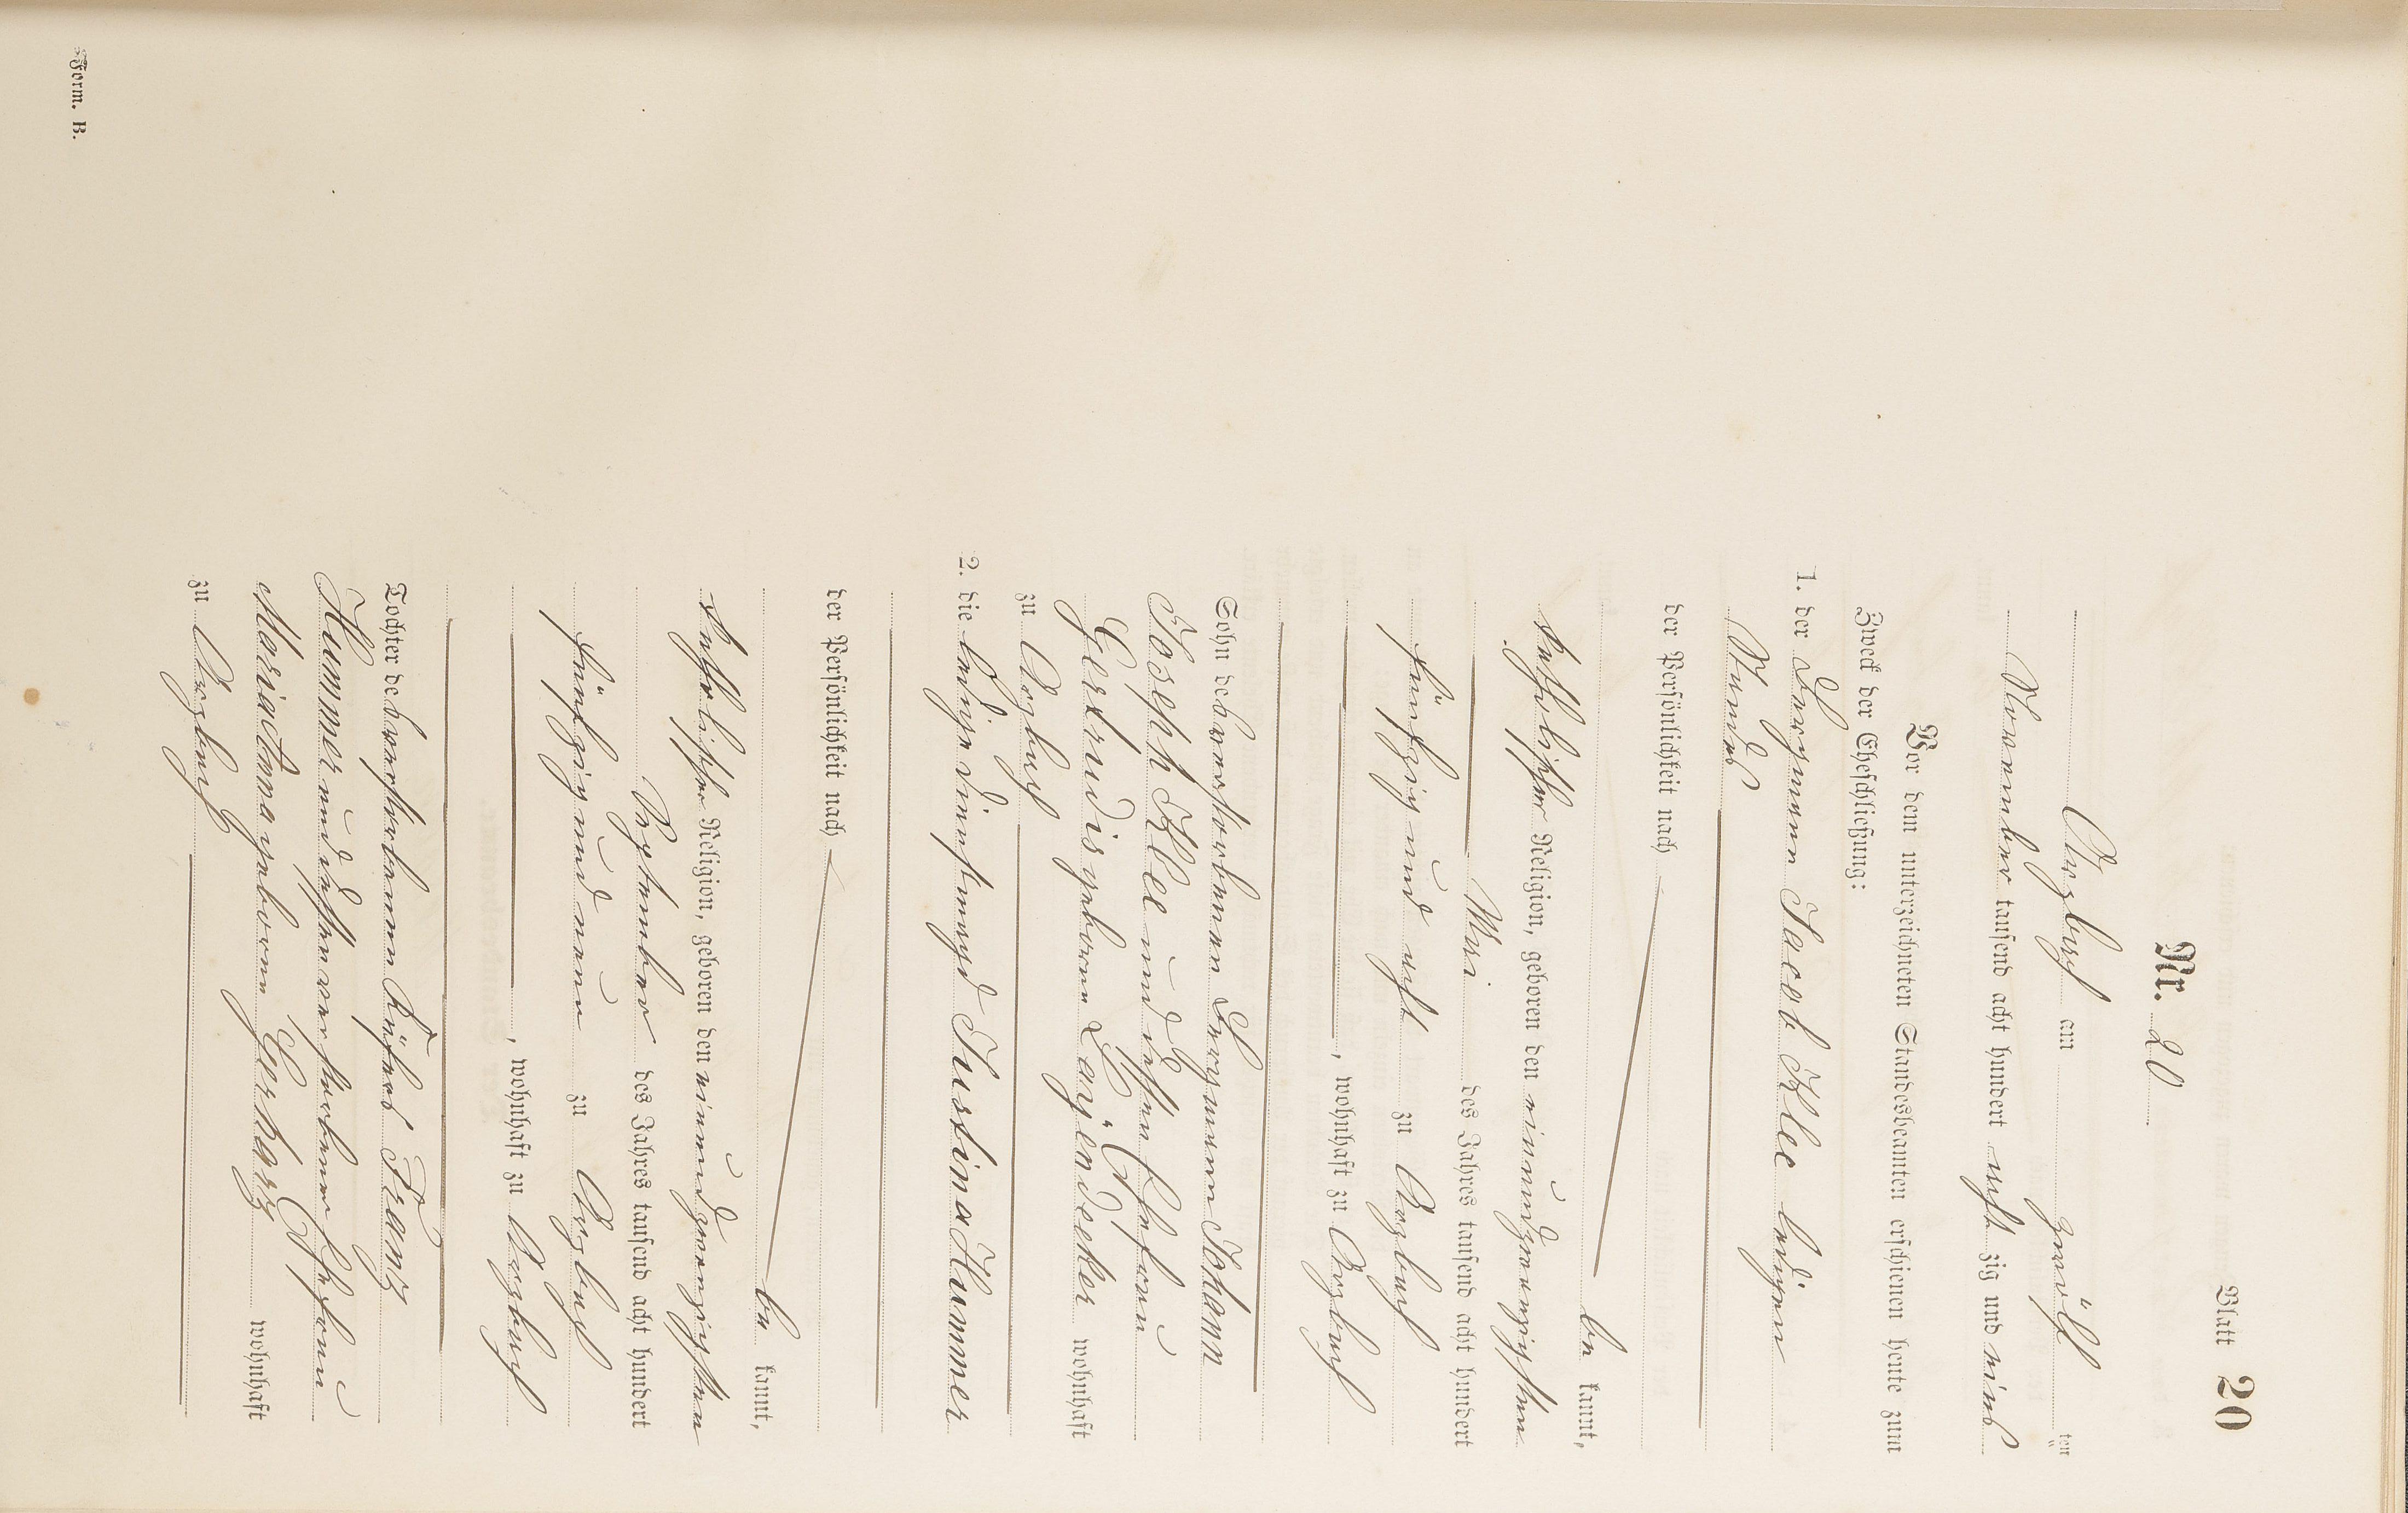 Blatt 20
Nr. 20
Arzbach am zwölf ten
November tausend acht hundert acht zig und eins
Vor dem unterzeichneten Standesbeamten erschienen heute zum
Zweck der Eheschließung:
1. der Bergmann Jacob Klee ledigen
Standes
der Persönlichkeit nach
be kannt,
katholischer Religion, geboren den einundzwanzigsten
Mai des Jahres tausend acht hundert
fünfzig und acht zu Arzbach
, wohnhaft zu Arzbach
Sohn des verstorbenen Bergmann Johann
Joseph Klee und dessen Ehefrau
Gertrudis geborne wohnhaft
zu Arzbach
2. die ledige Dienstmagd Justina Hummer
der Persönlichkeit nach
be kannt,
katholischer Religion, geboren den einundzwanzigsten
September des Jahres tausend acht hundert
fünfzig und neun zu Arzbach
, wohnhaft zu Arzbach
Tochter des verstorbenen Küfers Franz
Hummer und dessen verstorbener Ehefrau
Maria Anna geborene Gerharz wohnhaft
zu Arzbach
Form. B.